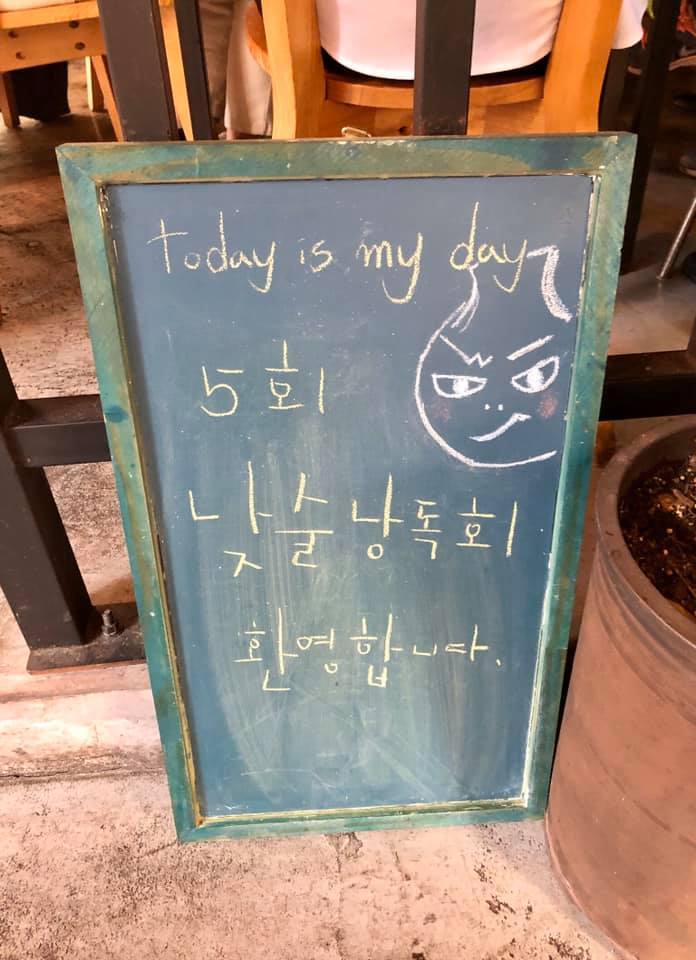 today is my day
5회
낮술낭독회
환영합니다.